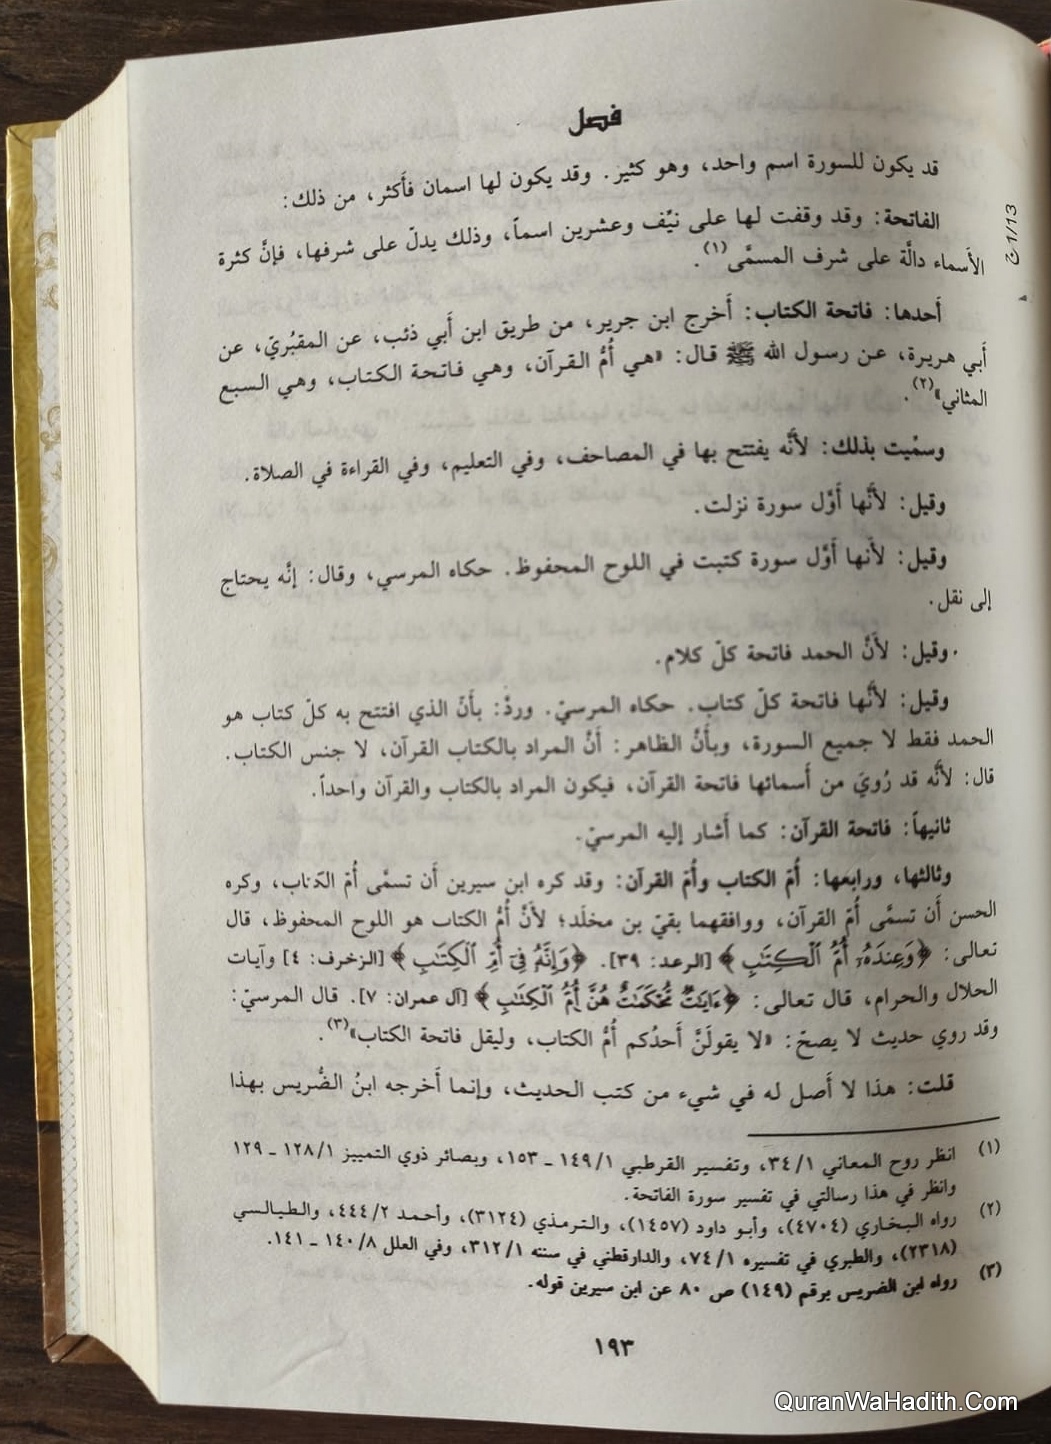 فصل
قد يكون للسورة اسم واحد، وهو كثير. وقد يكون لها اسمان فأكثر، من ذلك:
الفاتحة: وقد وقفت لها على نيِّف وعشرين اسماً، وذلك يدلّ على شرفها، فإنَّ كثرة
الأسماء دالَّة على شرف المسمَّى(١).
أحدها: فاتحة الكتاب: أخرج ابن جرير، من طريق ابن أبي ذئب، عن المقبُريّ، عن
أبي هريرة، عن رسول الله ﷺ قال: «هي أُمُّ القرآن، وهي فاتحة الكتاب، وهي السبع
المثاني»(٢).
وسمِّيت بذلك: لأنَّه يفتتح بها في المصاحف، وفي التعليم، وفي القراءة في الصلاة.
وقيل: لأنَّها أوَّل سورة نزلت.
وقيل: لأنها أوَّل سورة كتبت في اللوح المحفوظ. حكاه المرسي، وقال: إنَّه يحتاج
إلى نقل.
وقيل: لأنَّ الحمد فاتحة كلّ كلام.
وقيل: لأنَّها فاتحة كلّ كتاب. حكاه المرسيّ. وردَّ: بأنّ الذي افتتح به كلّ كتاب هو
الحمد فقط لا جميع السورة، وبأنَّ الظاهر: أنَّ المراد بالكتاب القرآن، لا جنس الكتاب.
قال: لأنَّه قد رُويَ من أسمائها فاتحة القرآن، فيكون المراد بالكتاب والقرآن واحداً.
ثانيهاً: فاتحة القرآن: كما أشار إليه المرسيّ.
وثالثها، ورابعها: أُمّ الكتاب وأُمّ القرآن: وقد كره ابن سيرين أن تسمَّى أُمّ الكتاب، وكره
الحسن أن تسمَّى أُمّ القرآن، ووافقهما بقيّ بن مخلَد؛ لأنَّ أُمُّ الكتاب هو اللوح المحفوظ، قال
تعالى: ﴿وَعِندَهُۥٓ أُمُّ ٱلْكِتَٰبِ﴾ [الرعد: ٣٩]. ﴿وَإِنَّهُۥ فِىٓ أُمِّ ٱلْكِتَٰبِ﴾ [الزخرف: ٤] وآيات
الحلال والحرام، قال تعالى: ﴿ءَايَٰتٌ مُّحْكَمَٰتٌ هُنَّ أُمُّ ٱلْكِتَٰبِ﴾ [آل عمران: ٧]. قال المرسيّ:
وقد روي حديث لا يصحّ: «لا يقولَنَّ أحدُكم أُمُّ الكتاب، وليقل فاتحة الكتاب»(٣).
قلت: هذا لا أصل له في شيء من كتب الحديث، وإنما أخرجه ابنُ الضُّريس بهذا
(١) انظر روح المعاني ٣٤/١، وتفسير القرطبي ١٤٩/١ ـ ١٥٣، وبصائر ذوي التمييز ١٢٨/١ ـ ١٢٩
وانظر في هذا رسالتي في تفسير سورة الفاتحة.
(٢) رواه البخاري (٤٧٠٤)، وأبو داود (١٤٥٧)، والترمذي (٣١٢٤)، وأحمد ٤٤٤/٢، والطيالسي
(٢٣١٨)، والطبري في تفسيره ٧٤/١، والدارقطني في سننه ٣١٢/١، وفي العلل ١٤٠/٨ ـ ١٤١.
(٣) رواه ابن الضريس برقم (١٤٩) ص ٨٠ عن ابن سيرين قوله.
١٩٣
QuranWaHadith.Com